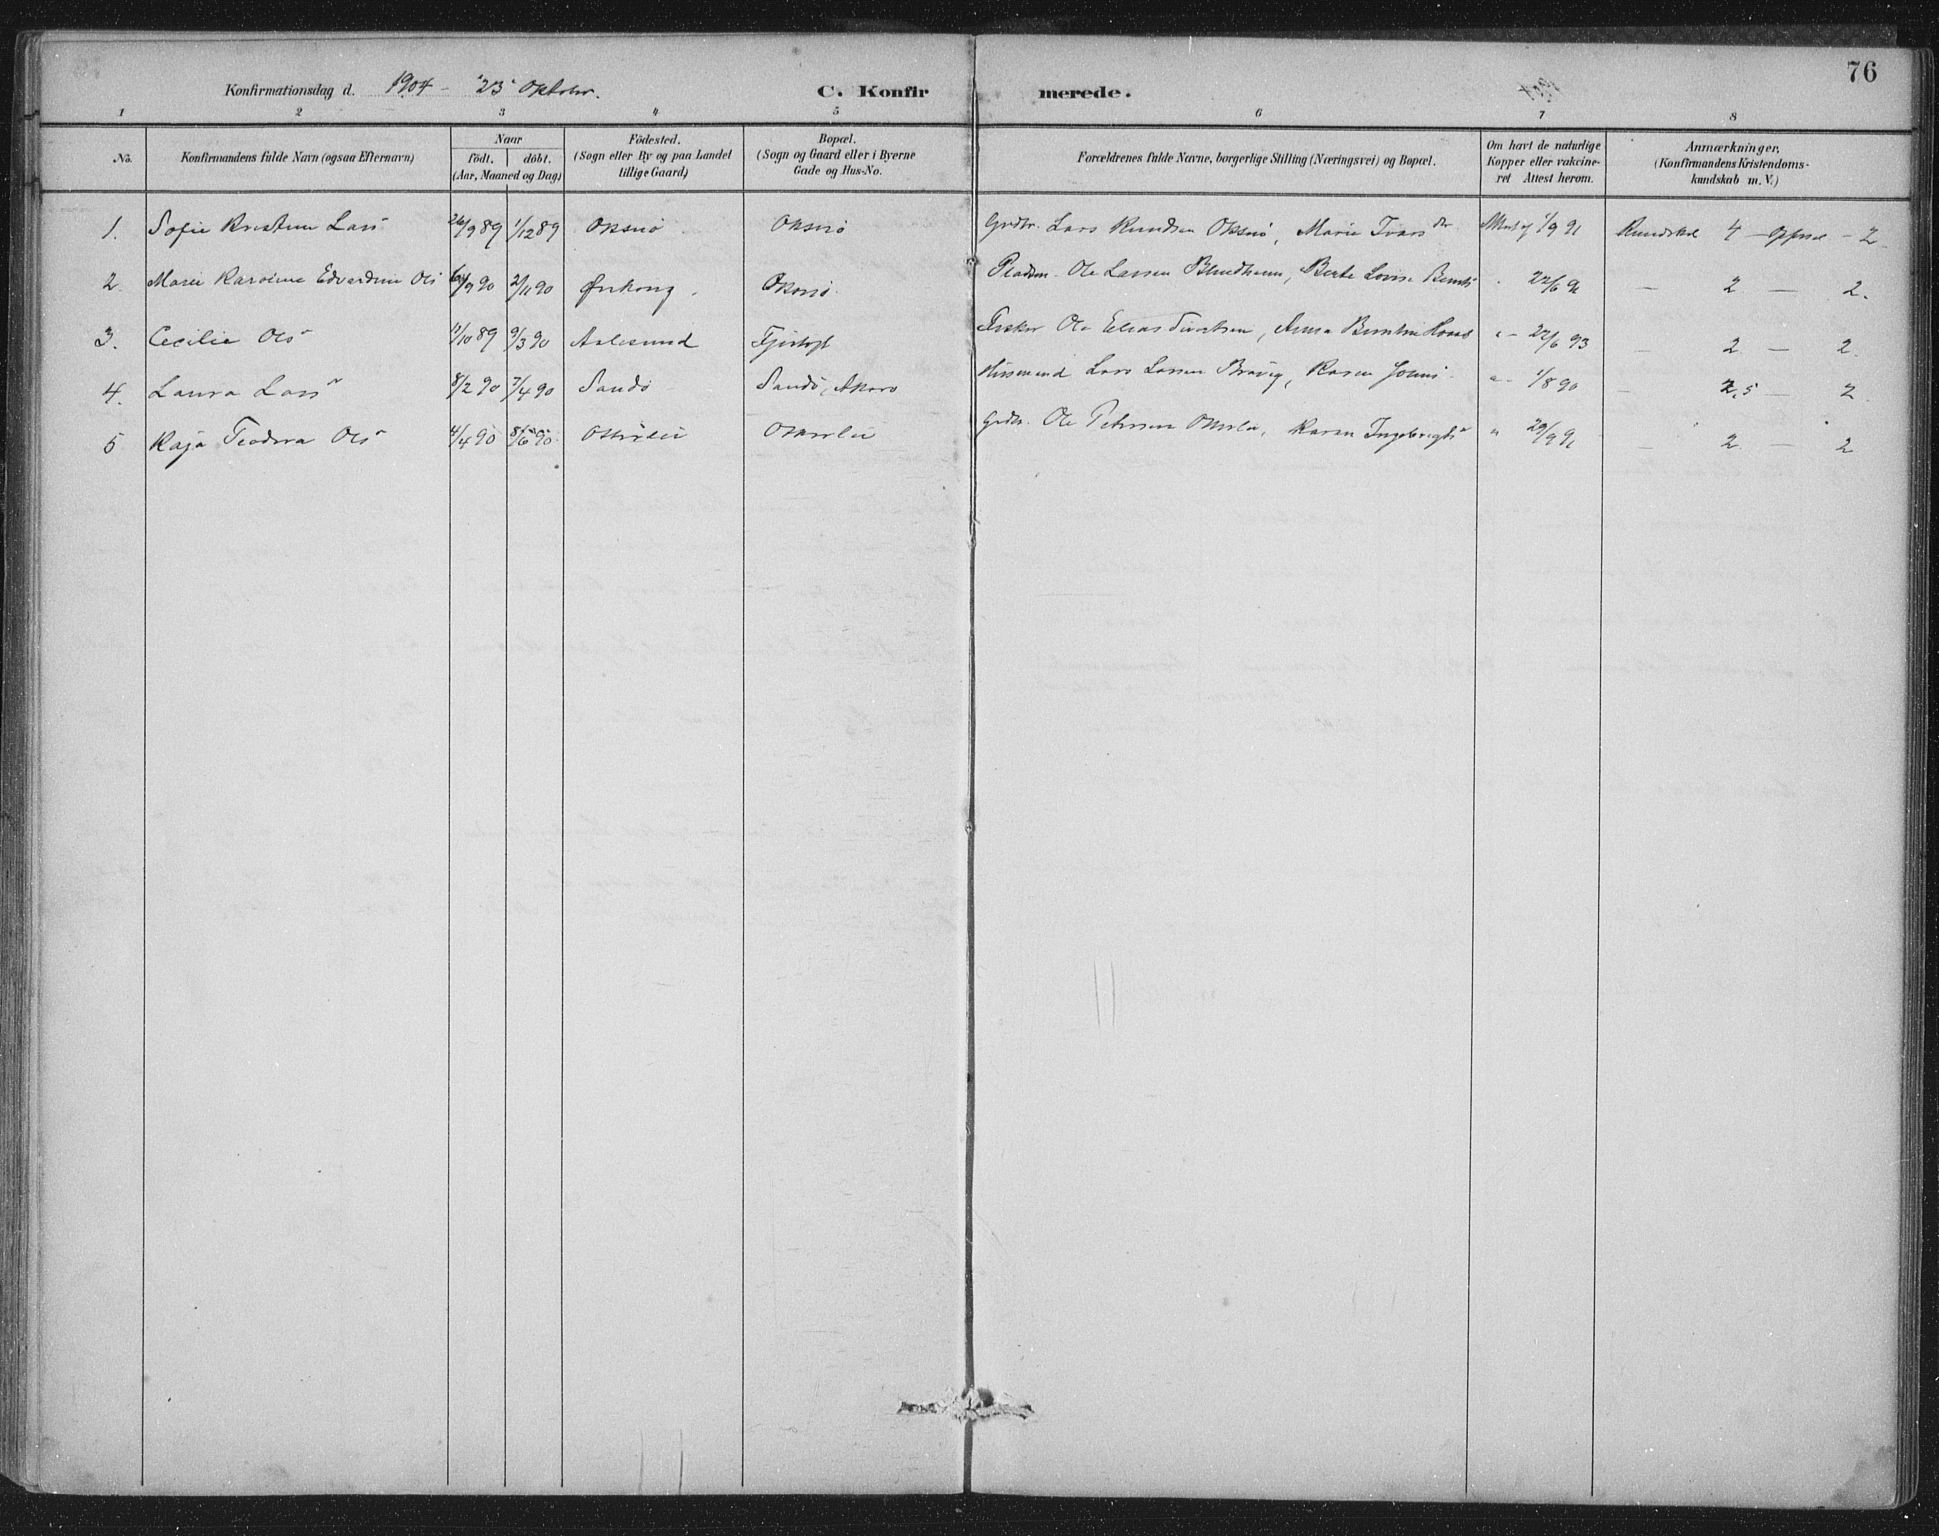 76
Konfirmationsdag d. 1904 - 23 Oktober.
C. Konfirmerede.
1904
1 2 3 4 5 6 7 8
No.
Konfirmandens fulde Navn (ogsaa Efternavn)
Naar
födt. döbt.
(Aar, Maaned og Dag)
Födested.
(Sogn eller By og paa Landet
tillige Gaard)
Bopæl.
(Sogn og Gaard eller i Byerne
Gade og Hus-No.
Forældrenes fulde Navne, borgerlige Stilling (Næringsvei) og Bopæl.
Om havt de naturlige
Kopper eller vakcine-
ret Attest herom.
Anmærkninger,
(Konfirmandens Kristendoms-
kundskab m. V.)
1. Sofie Kristine Lars 26/9 89 1/12 89 Oksnö Oksnö Grdbr. Lars Knudsen Oksnö, Marie Ivars dr. Attest af 1/9 91 Kundskab 4 - Opförsel - 2.
2. Marie Karoline Edvardine Ols 2/11 90 Oksnö. Pladsm. Ole Larsen Blindheim, Berte Lovise - 2 - 2.
3. Cecilie Ols 9/3 90 Aalesund Fjörtoft Fisker Ole Elias Sivertsen, Anna 22/6 93 - 2. - 2.
4. Laura Lars 8/2 90 7/4 90 Sandö Sandö, Husmand Lars Larsen Karen 1/8 90 - 2,5 - 2
5 Kaja Teodora Ols 4/4 90 8/6 90. Grdbr. Ole Petersen Karen Ingebrigts - 2. - 2